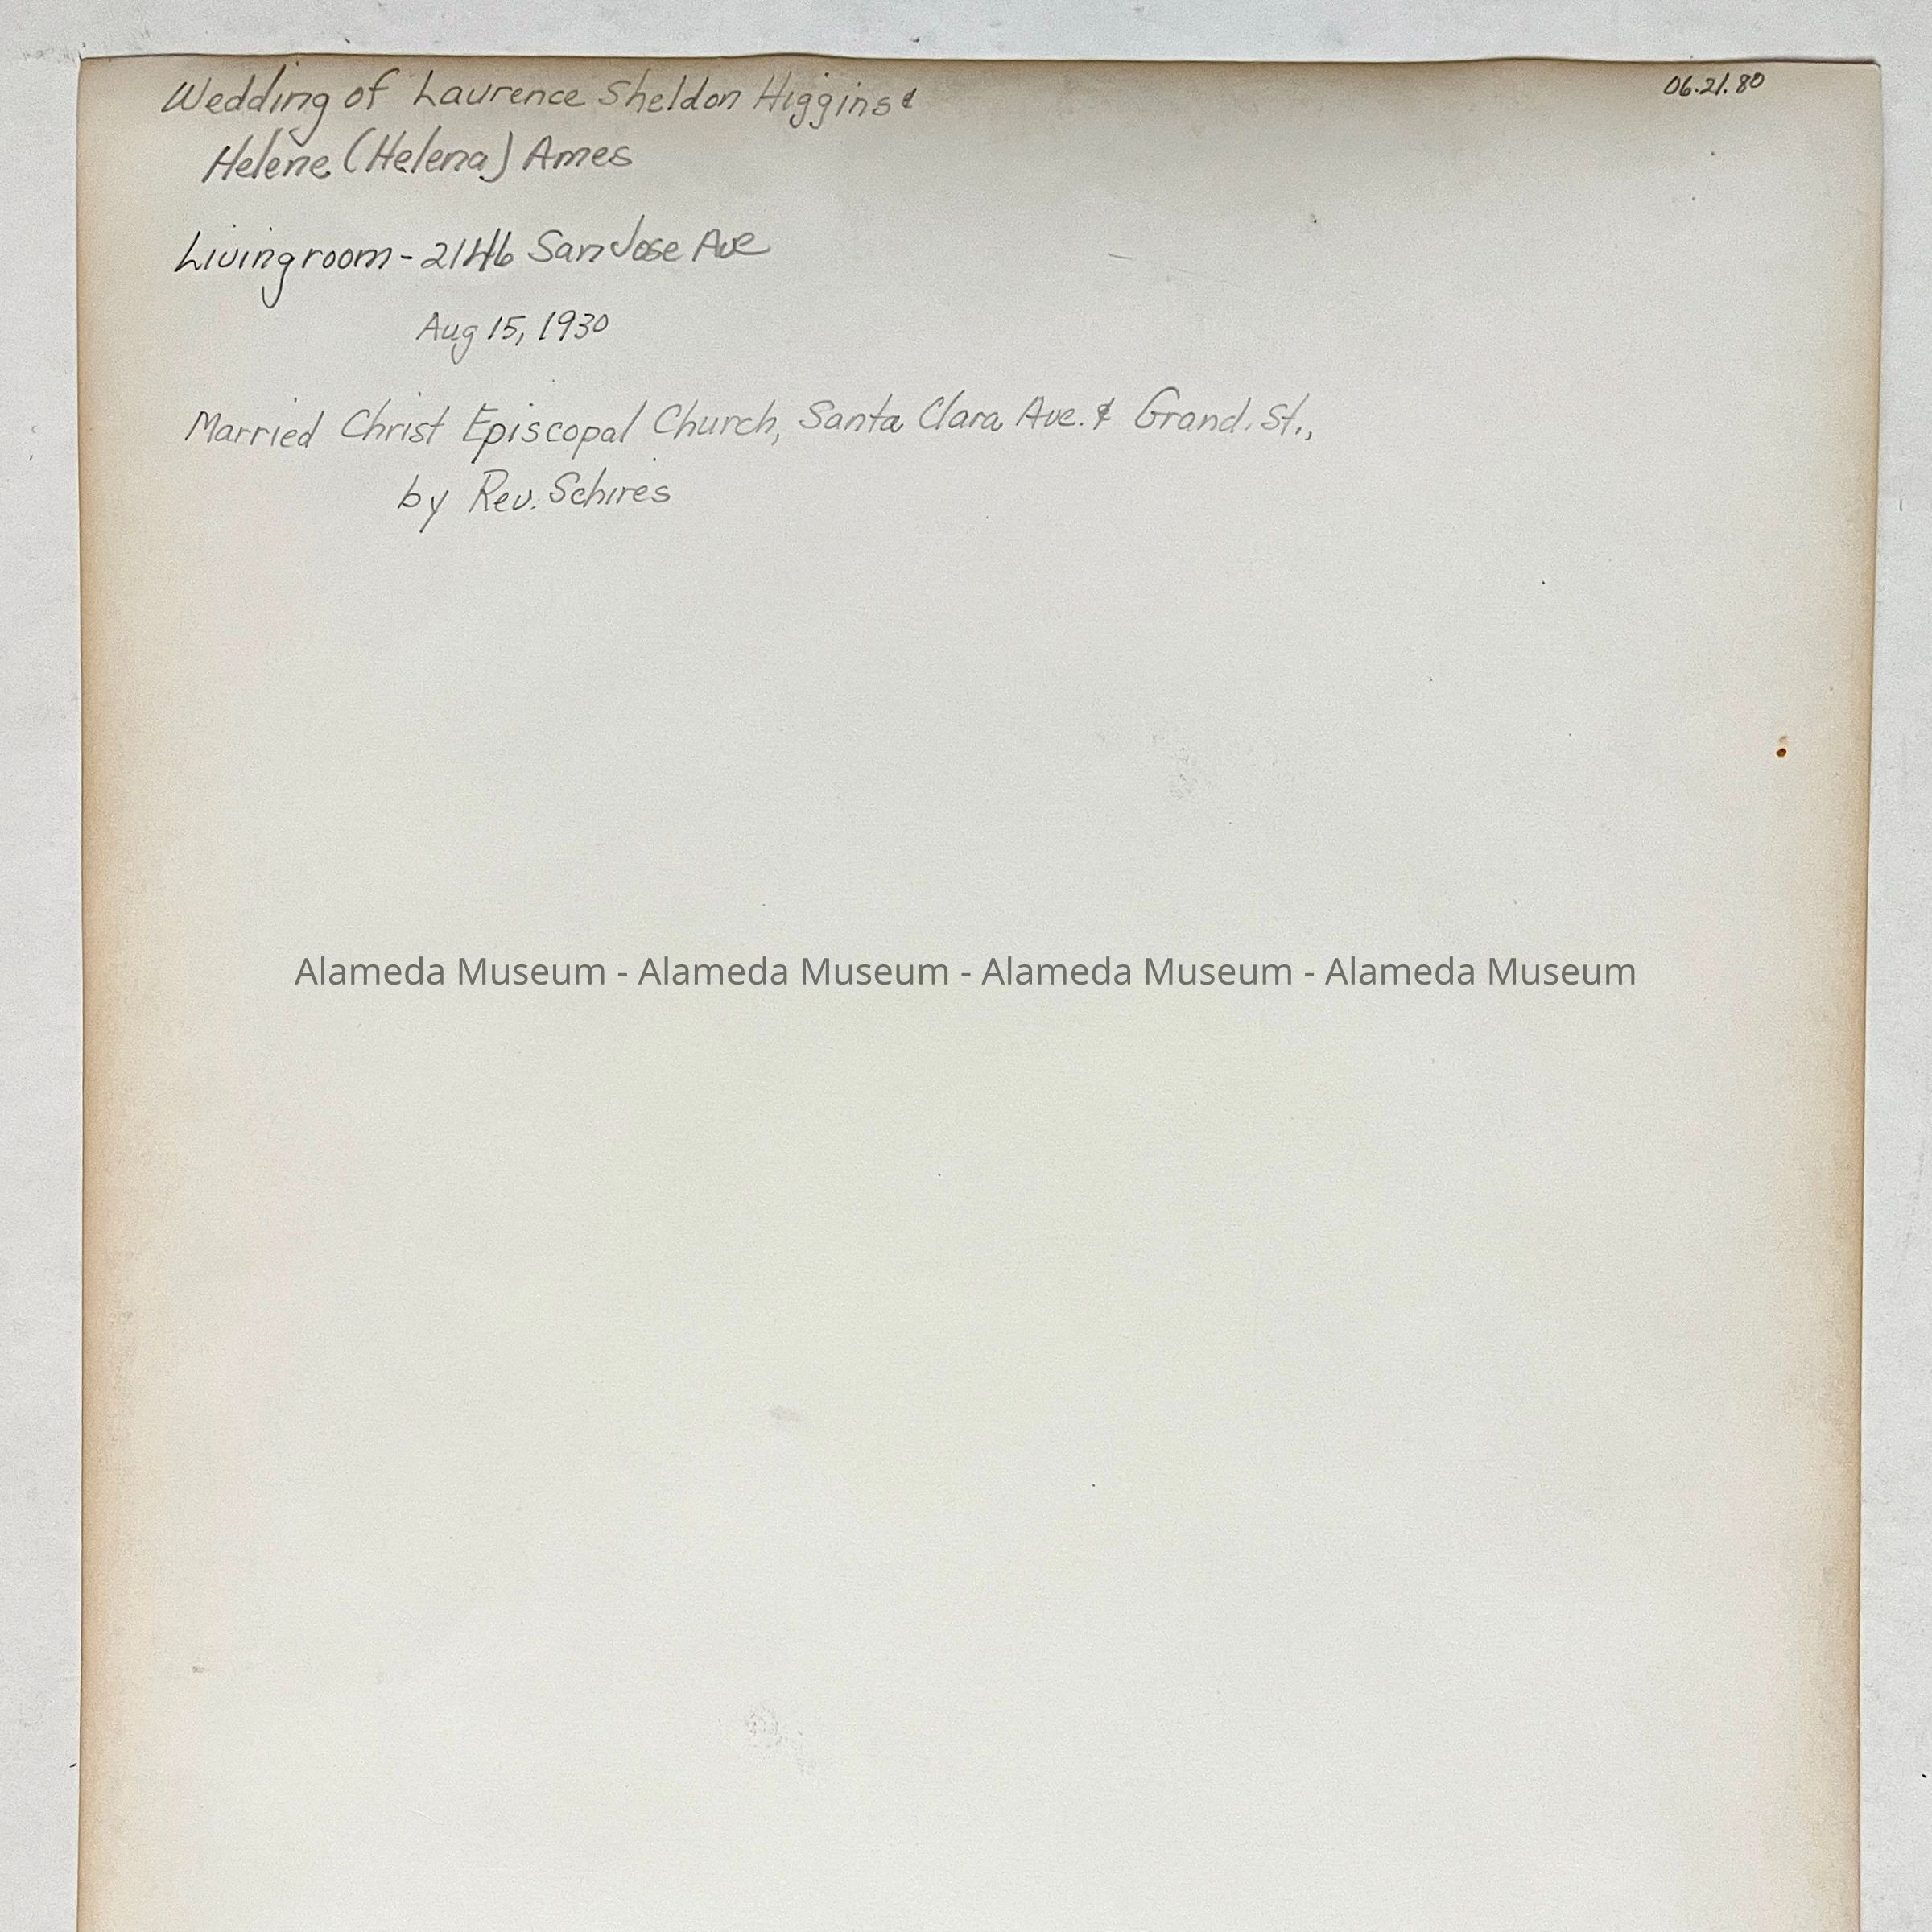 06.21.80
Wedding of Laurence Sheldon Higgins &
Helene (Helena) Ames
Livingroom - 2146 San Jose Ave
Aug 15, 1930
Married Christ Episcopal Church, Santa Clara Ave. & Grand. St.,
by Rev. Schires
Alameda Museum - Alameda Museum - Alameda Museum - Alameda Museum